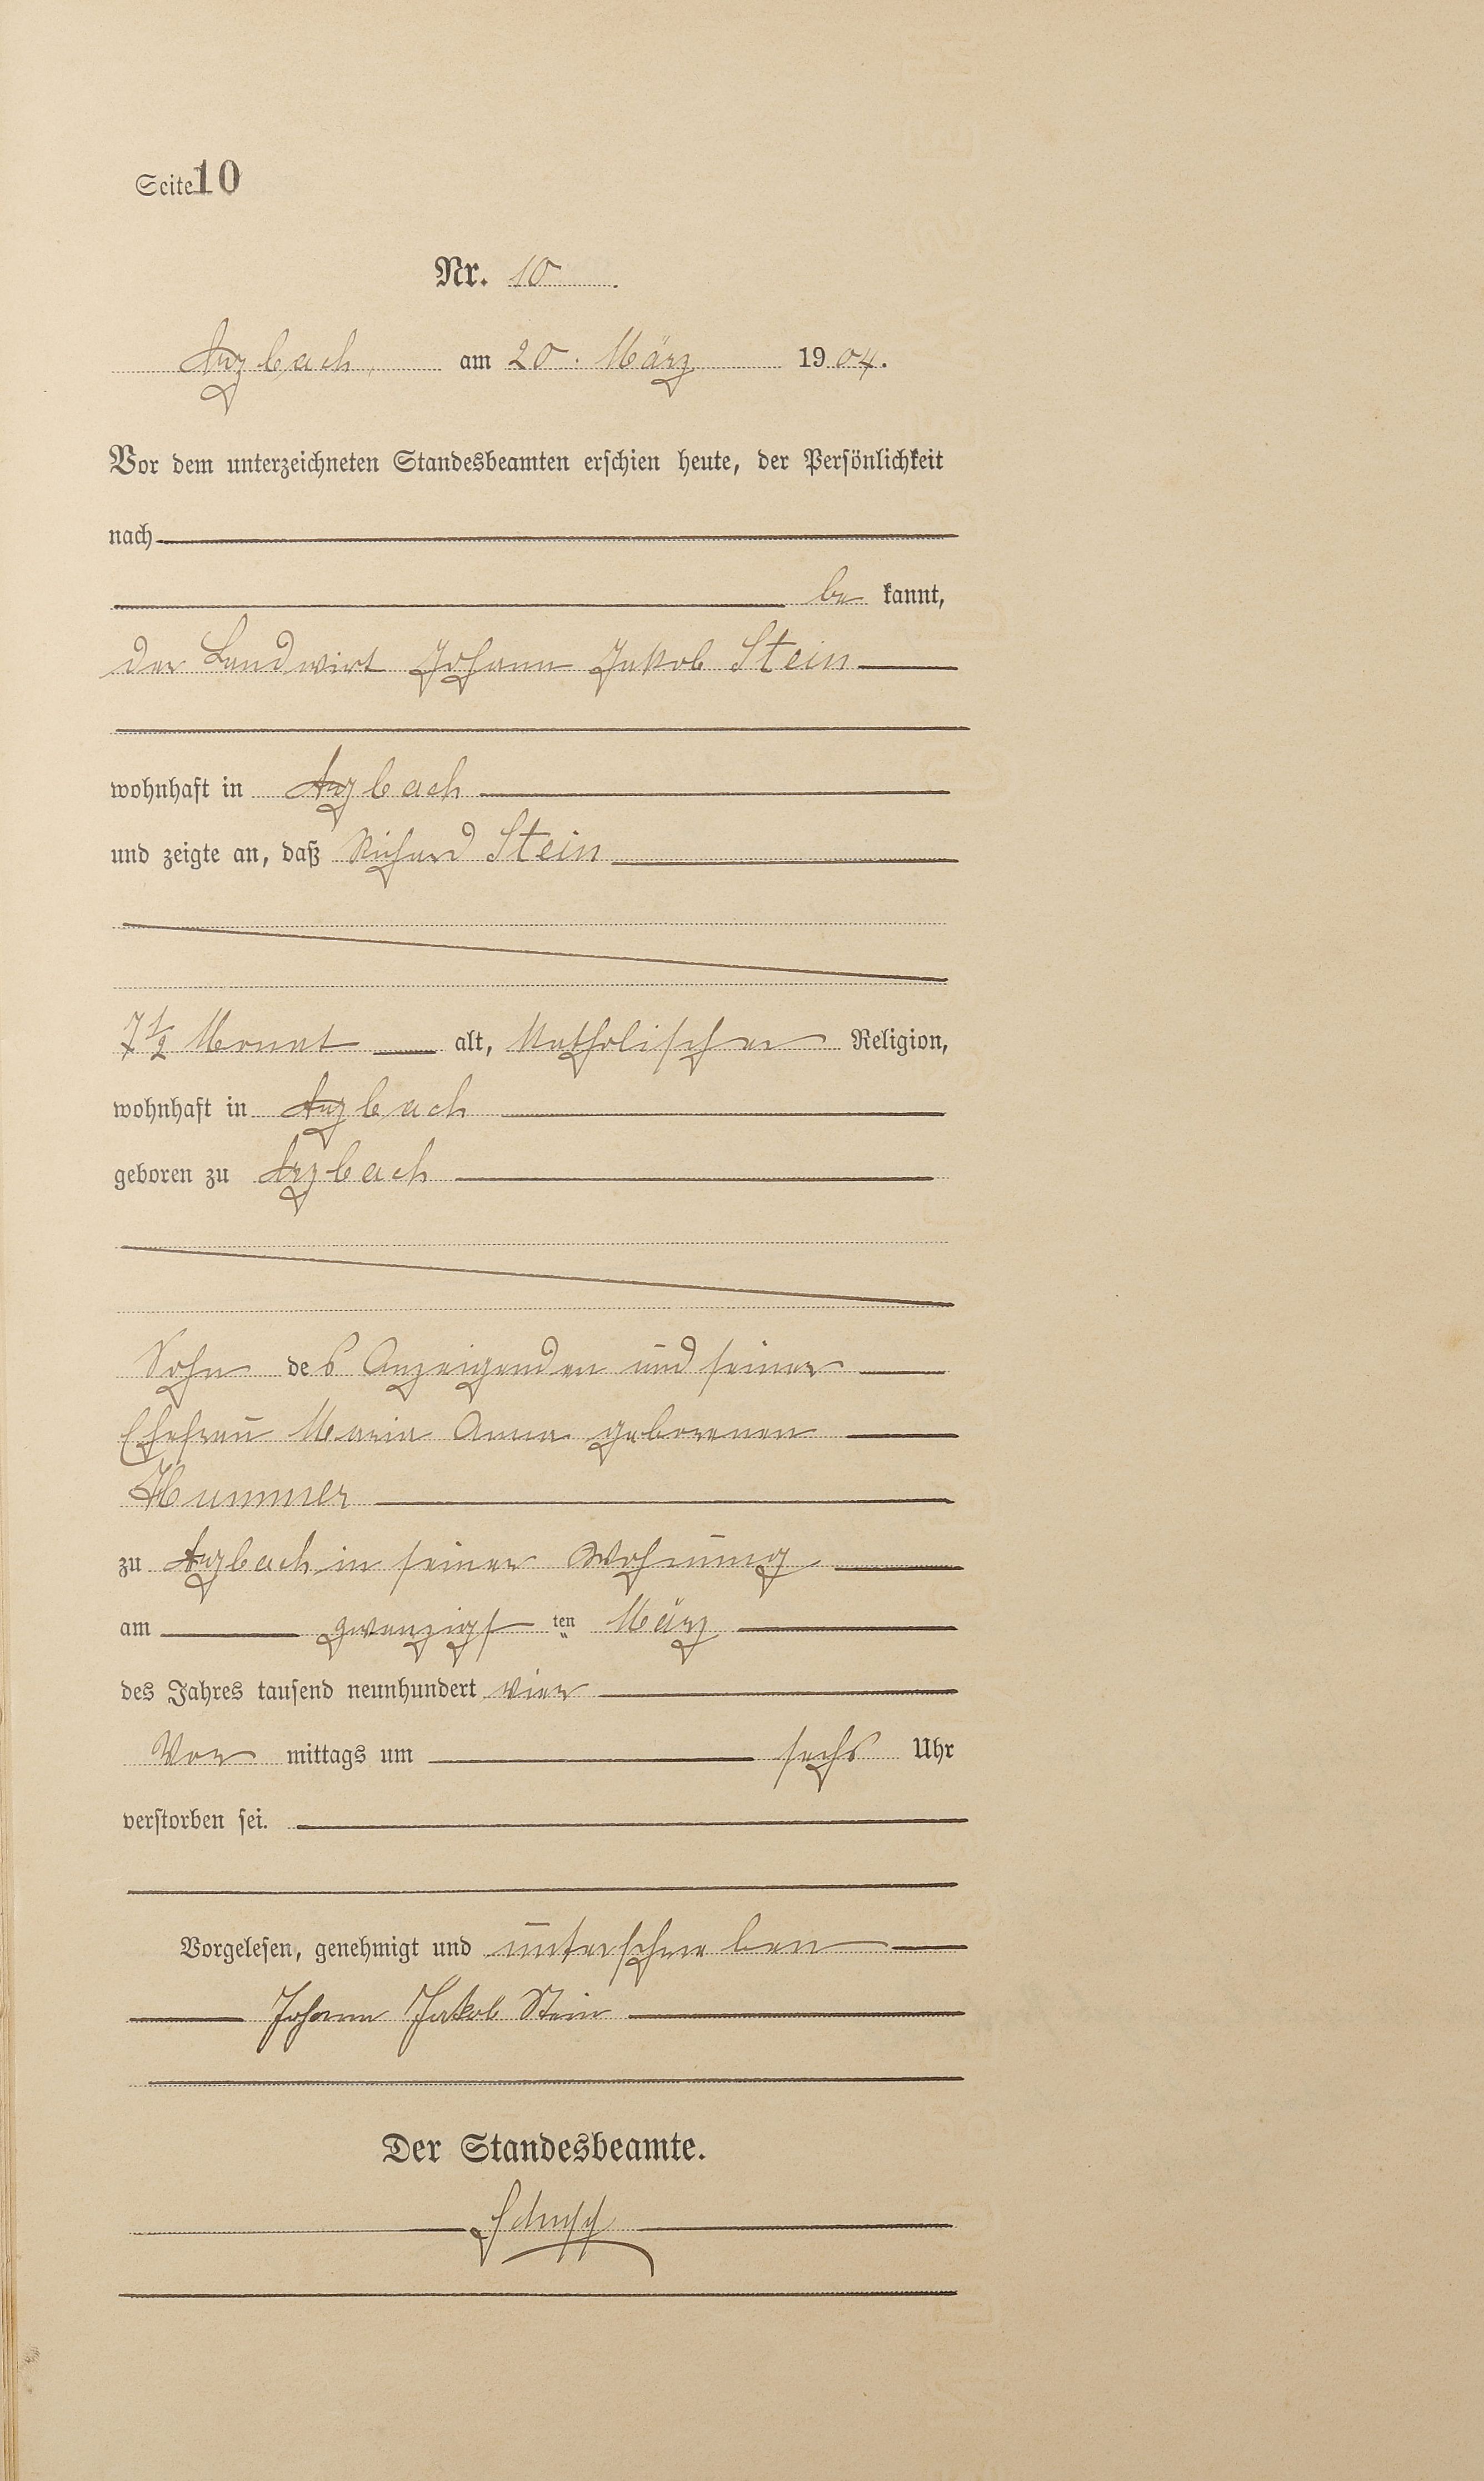 Seite 10
Nr. 10.
Arzbach, am 20. März 1904.
Vor dem unterzeichneten Standesbeamten erschien heute, der Persönlichkeit
nach
be kannt,
der Landwirt Johann Jakob Stein
wohnhaft in Arzbach
und zeigte an, daß Richard Stein
7 1/2 Monat alt, katholischer Religion,
wohnhaft in Arzbach
geboren zu Arzbach
Sohn des Anzeigenden und seiner
Ehefrau Maria Anna geborenen
Hummer
zu Arzbach in seiner Wohnung
am zwanzigsten März
des Jahres tausend neunhundert vier
Vor mittags um sechs Uhr
verstorben sei.
Vorgelesen, genehmigt und unterschrieben
Johann Jakob Stein
Der Standesbeamte.